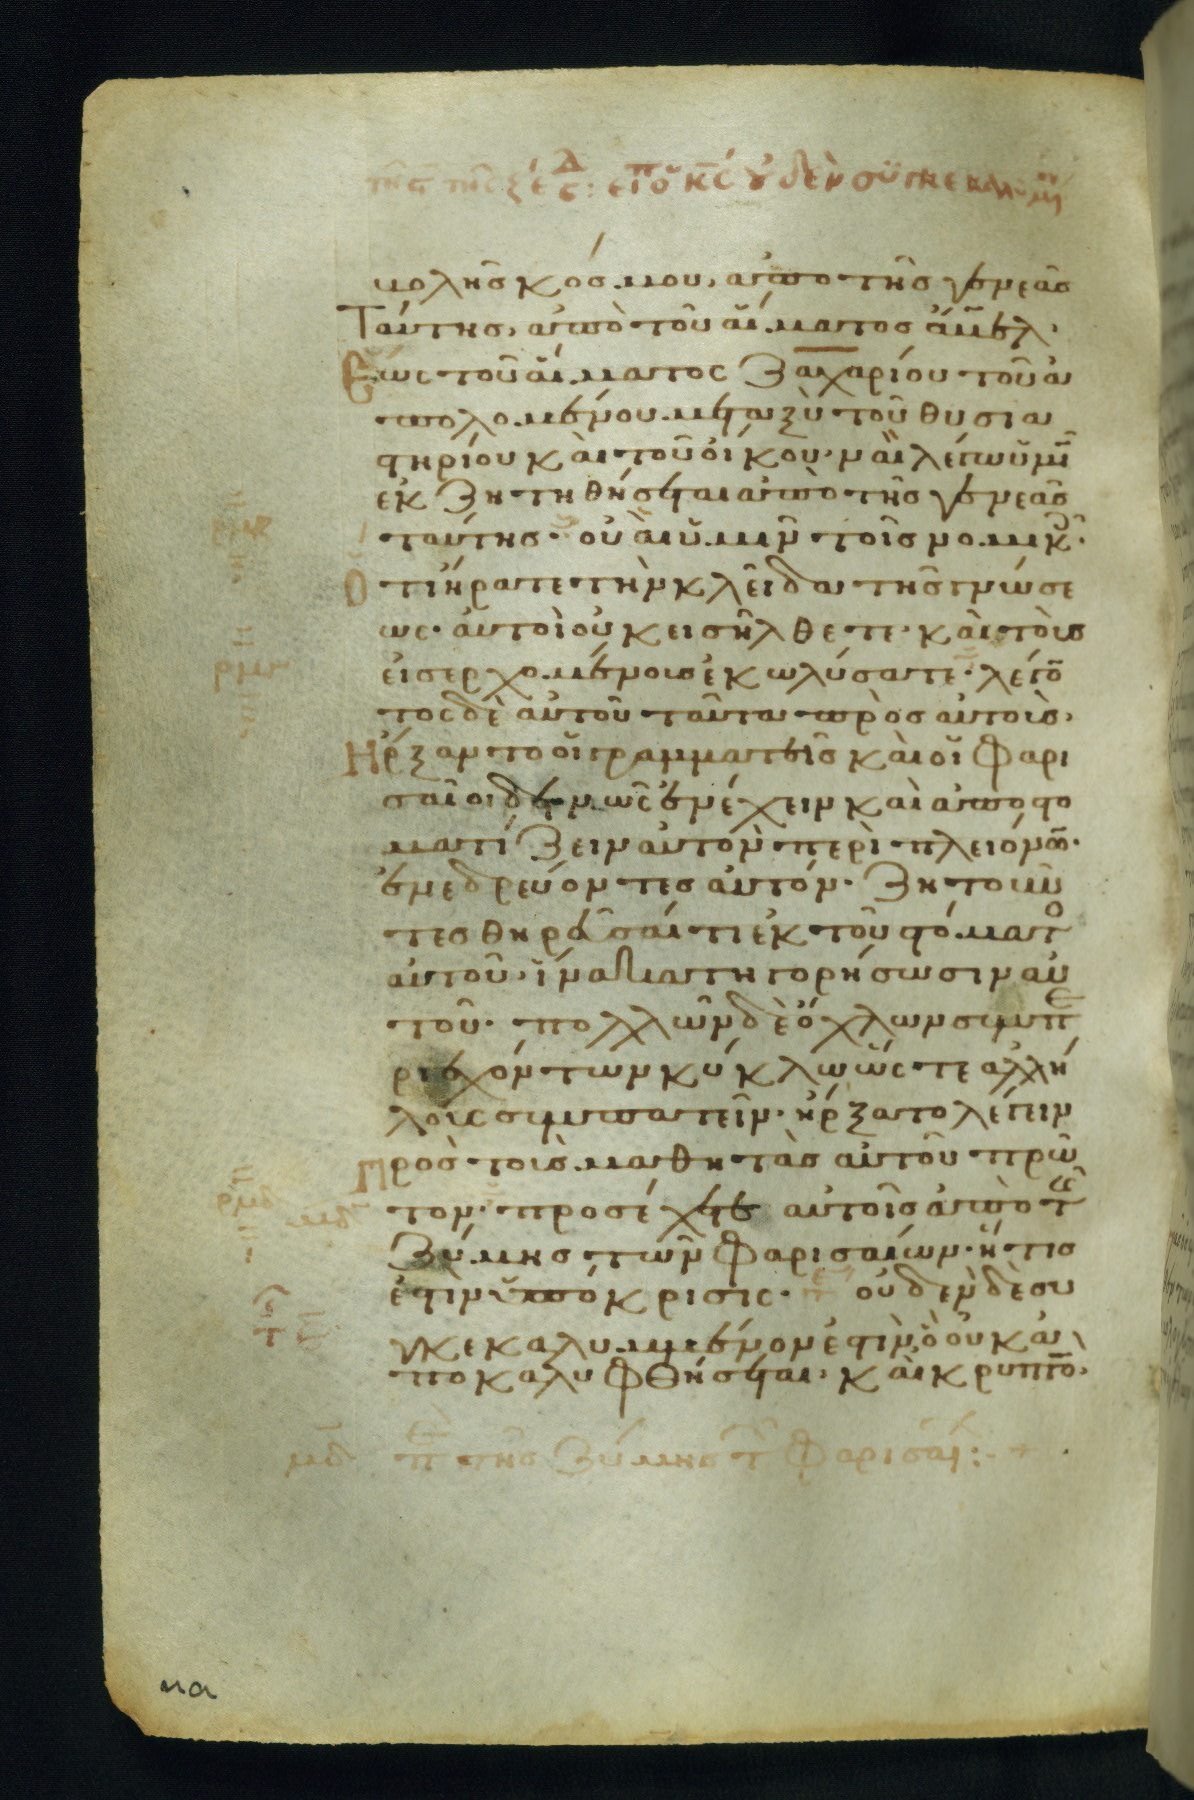 εἶπεν ὁ κς οὐδὲν συγκεκαλυμμ
βολῆς κόσμου, ἀπὸ τῆς γενεᾶς
Ταύτης, ἀπὸ τοῦ αἵματος ἄβελ·
Ἕως τοῦ αἵματος Ζαχαρίου τοῦ ἀ
πολομένου μεταξὺ τοῦ θυσια
στηρίου καὶ τοῦ οἴκου· ναὶ λέγω ὑμῖ
ἐκζητηθήσεται ἀπὸ τῆς γενεᾶς
ταύτης· οὐαὶ ὑμῖν τοῖς νομικοῖ·
Ὅτι ἤρατε τὴν κλεῖδα τῆς γνώσε
ως· αὐτοὶ οὐκ εἰσήλθετε· καὶ τοὺς
εἰσερχομένους ἐκωλύσατε· λέγο
τος δὲ αὐτοῦ ταῦτα πρὸς αὐτοὺς,
Ἤρξαντο οἱ γραμματεῖς καὶ οἱ Φαρι
σαῖοι δεινῶς ἐνέχειν καὶ ἀποστο
ματίζειν αὐτὸν περὶ πλειόνω·
ἐνεδρεύοντες αὐτόν· Ζητοῦν
τες θηρεῦσαί τι ἐκ τοῦ στόματο
αὐτοῦ· ἵνα κατηγορήσωσιν αὐ
τοῦ· πολλῶν δὲ ὄχλων συμπε
ριεχόντων κύκλω ὥστε ἀλλή
λους συμπατεῖν· ἤρξατο λέγειν
Πρὸς τοὺς μαθητὰς αὐτοῦ πρῶ
τον· προσέχετε αὐτοῖς ἀπὸ τῆς
Ζύμης τῶν Φαρισαίων· ἥτις
ἐστὶν ὑπόκρισις· οὐδὲν δὲ συ
γκεκαλυμμένον ἐστὶν, ὃ οὐκ ἀ
ποκαλυφθήσεται· καὶ κρυπτὸ,
μδ πε τῆς Ζύμης τῶ Φαρισαί: